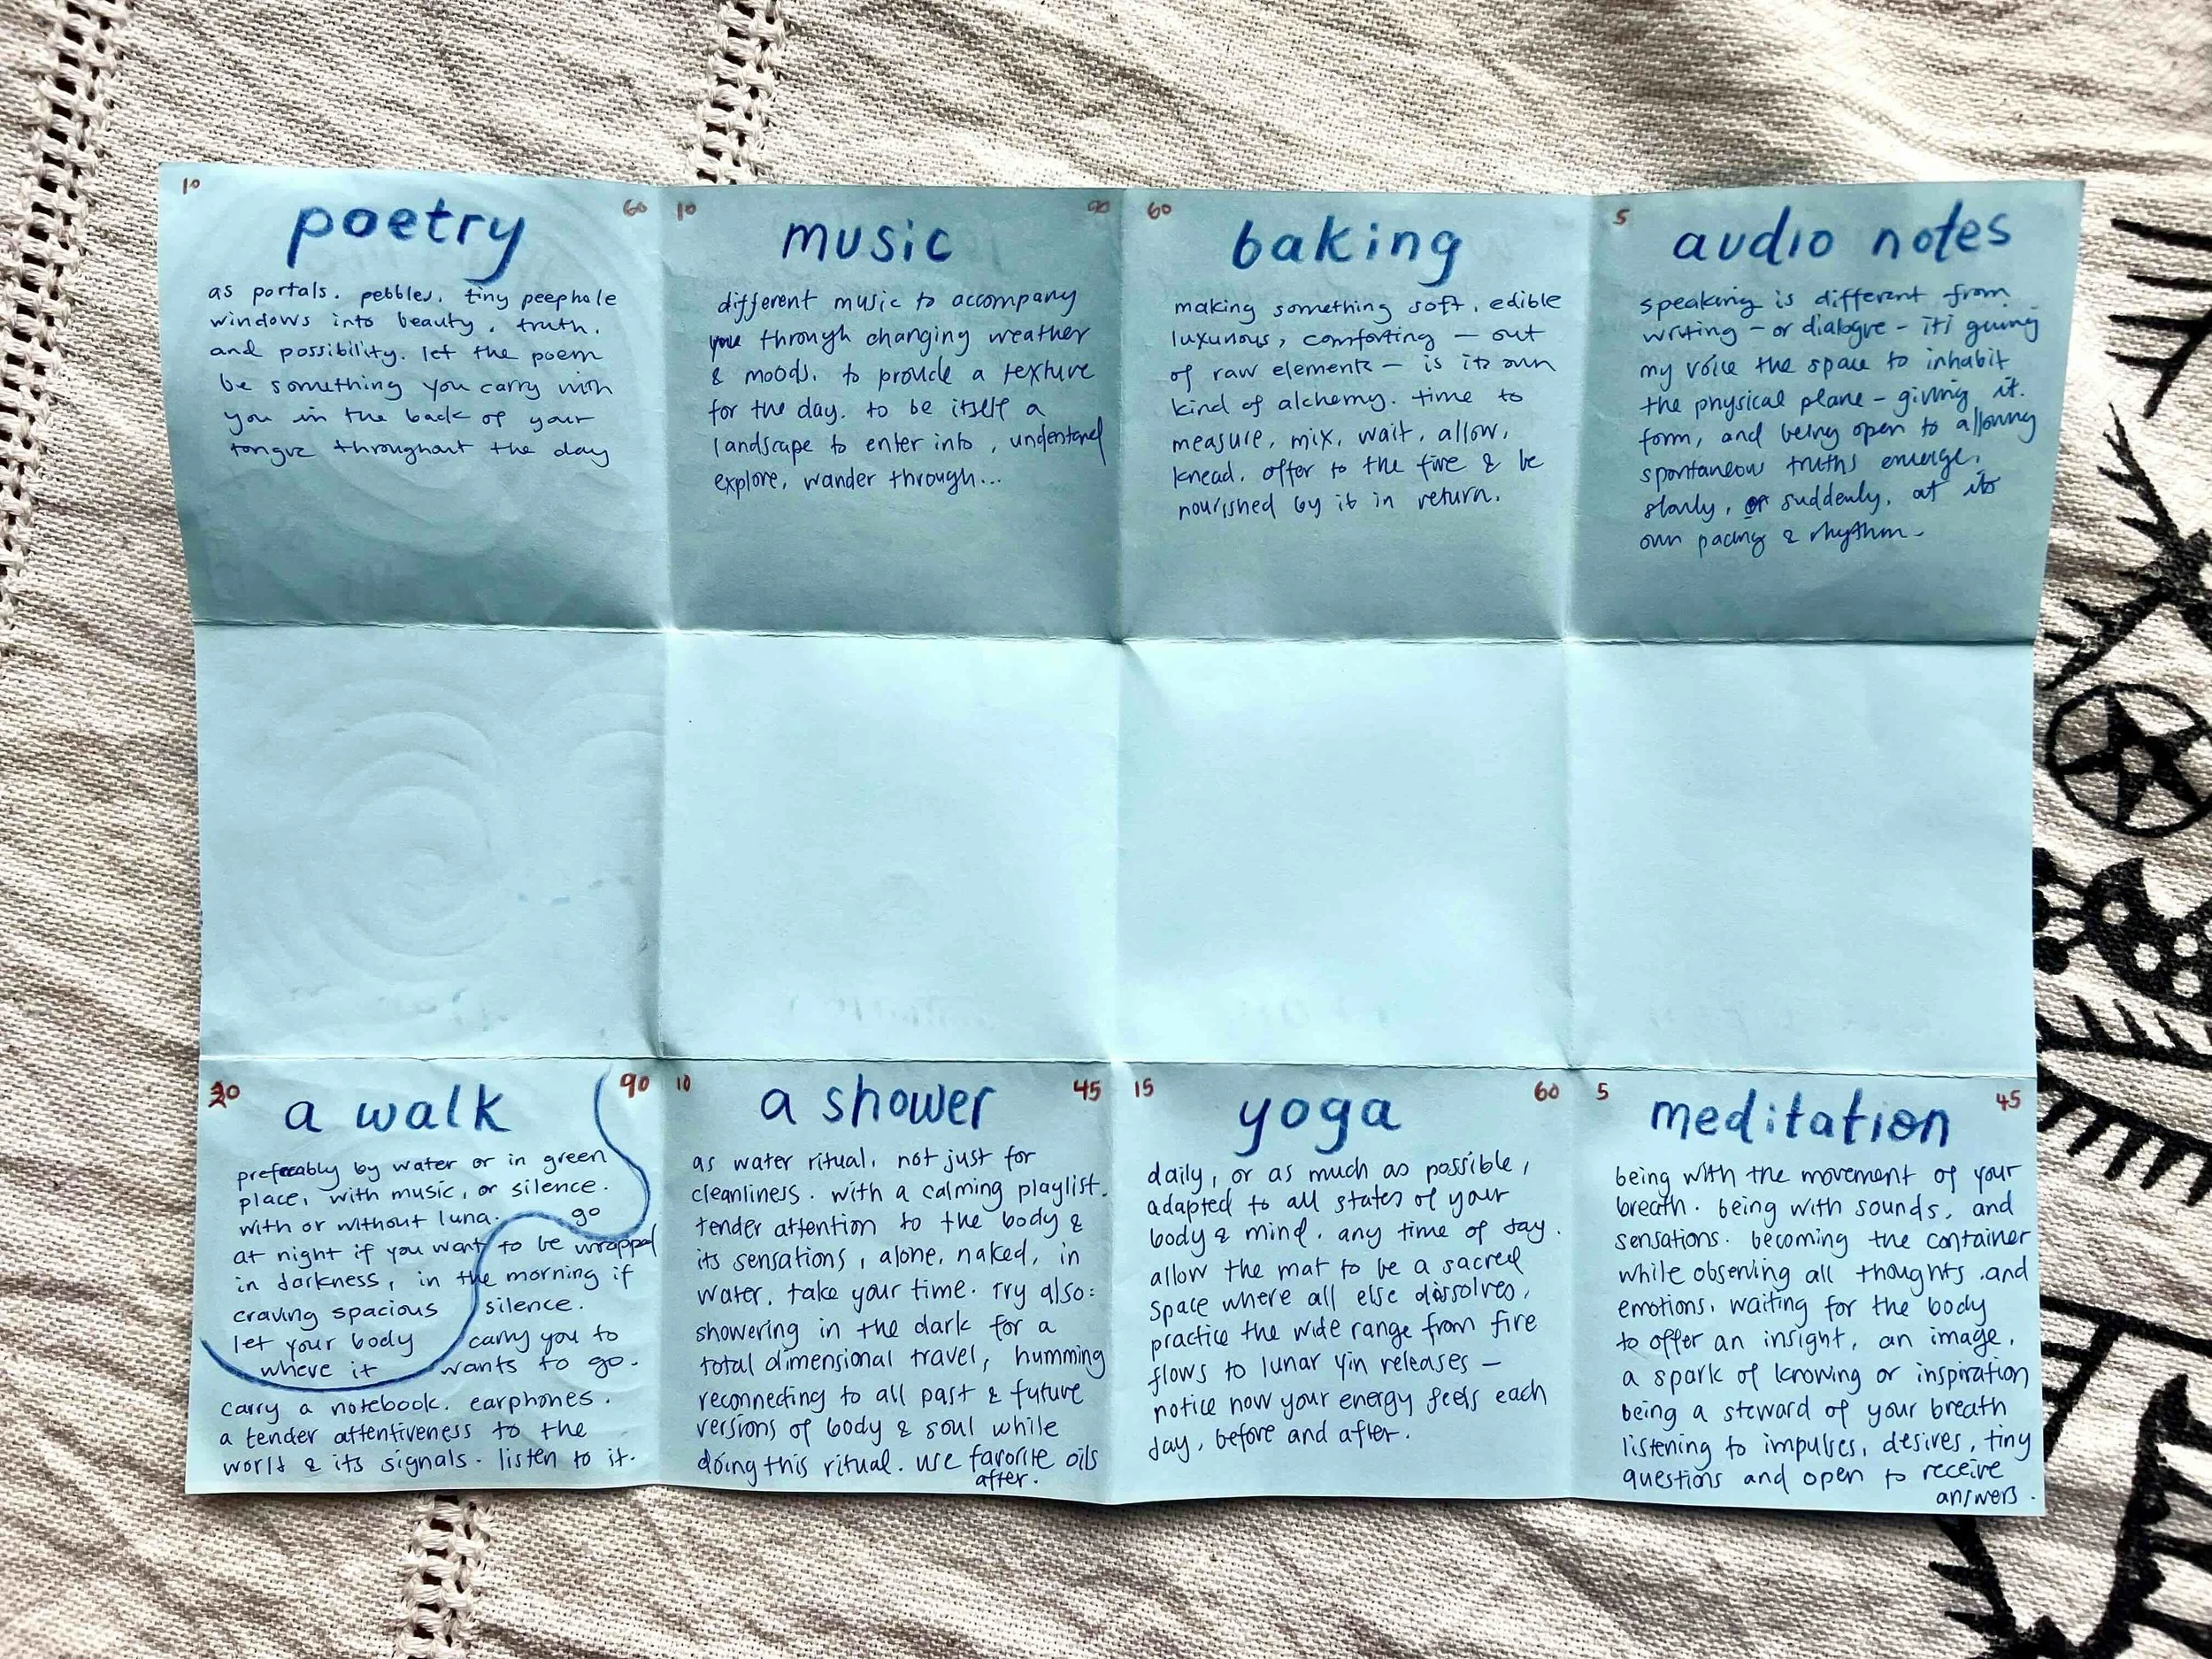 10
60
poetry
as portals. pebbles. tiny peephole
windows into beauty, truth,
and possibility. let the poem
be something you carry with
you in the back of your
tongue throughout the day
10
90
music
different music to accompany
you through changing weather
& moods. to provide a texture
for the day. to be itself a
landscape to enter into, understand
explore, wander through...
60
baking
making something soft, edible
luxurious, comforting — out
of raw elements — is its own
kind of alchemy. time to
measure, mix, wait, allow,
knead, offer to the fire & be
nourished by it in return.
5
audio notes
speaking is different from
writing - or dialogue - it's giving
my voice the space to inhabit
the physical plane - giving it
form, and being open to allowing
spontaneous truths emerge,
slowly, or suddenly, at its
own pacing & rhythm.
20
90
a walk
preferably by water or in green
place, with music, or silence.
with or without luna. go
at night if you want to be wrapped
in darkness, in the morning if
craving spacious silence.
let your body carry you to
where it wants to go.
carry a notebook. earphones.
a tender attentiveness to the
world & its signals. listen to it.
10
45
a shower
as water ritual, not just for
cleanliness. with a calming playlist.
tender attention to the body &
its sensations, alone, naked, in
water. take your time. try also:
showering in the dark for a
total dimensional travel, humming
reconnecting to all past & future
versions of body & soul while
doing this ritual. use favorite oils
after.
15
60
yoga
daily, or as much as possible,
adapted to all states of your
body & mind. any time of day.
allow the mat to be a sacred
space where all else dissolves,
practice the wide range from fire
flows to lunar yin releases —
notice how your energy feels each
day, before and after.
5
45
meditation
being with the movement of your
breath. being with sounds, and
sensations. becoming the container
while observing all thoughts and
emotions. waiting for the body
to offer an insight, an image,
a spark of knowing or inspiration
being a steward of your breath
listening to impulses, desires, tiny
questions and open to receive
answers.